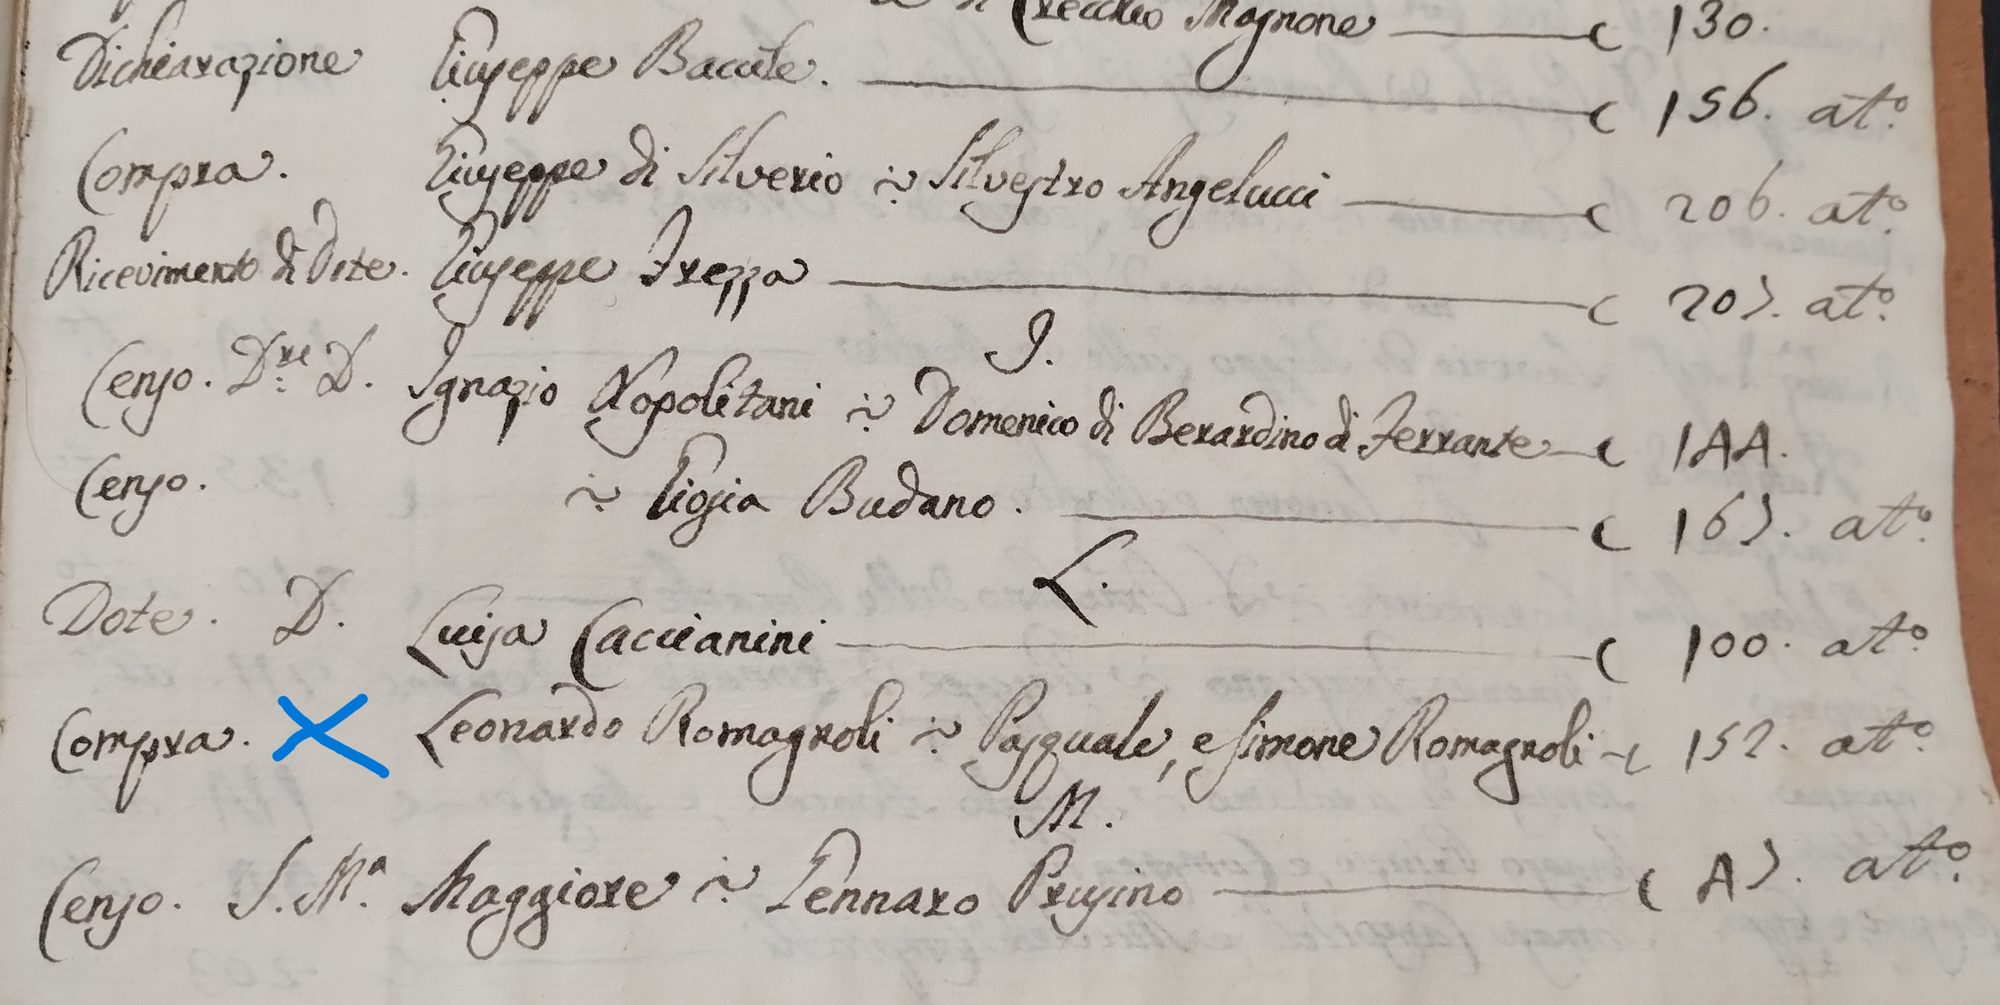 di Crecchio Magnone c 130.
Dichiarazione Giuseppe Bacile. c 156. at.º
Compra. Giuseppe di Silverio ~ Silvestro Angelucci c 206. at.º
Ricevimento di Dote. Giuseppe Frezza c 205. at.º
I.
Censo. D.re D. Ignazio Napolitani ~ Domenico di Berardino di Ferrante c 144.
Censo. ~ Giosia Budano. c 165. at.º
L.
Dote. D. Luisa Caccianini c 100. at.º
Compra. Leonardo Romagnoli ~ Pasquale, e Simone Romagnoli c 152. at.º
M.
Censo. S. M.a Maggiore ~ Gennaro c 45. at.º